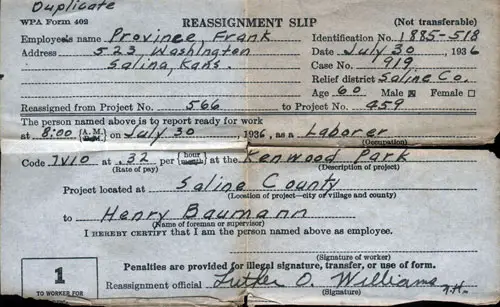 Duplicate
WPA Form 402 REASSIGNMENT SLIP (Not transferable)
Employee's name Province, Frank Identification No. 1885-518
Address 523 Washington Date July 30, 1936
Salina, Kans. Case No. 919
Relief district Saline Co.
Age 60 Male Female
Reassigned from Project No. 566 to Project No. 459
The person named above is to report ready for work
at 8:00 {A.M. on July 30, 1936, as a Laborer
(Occupation)
Code 7V10 at .32 per {hour} at the Kenwood Park
(Rate of pay) (Description of project)
Project located at Saline County
(Location of project—city or village and county)
to Henry Baumann
(Name of foreman or supervisor)
I HEREBY CERTIFY that I am the person named above as employee.
(Signature of worker)
Penalties are provided for illegal signature, transfer, or use of form.
1
TO WORKER FOR
Reassignment official Luther O. Williams
(Signature) 7.H.